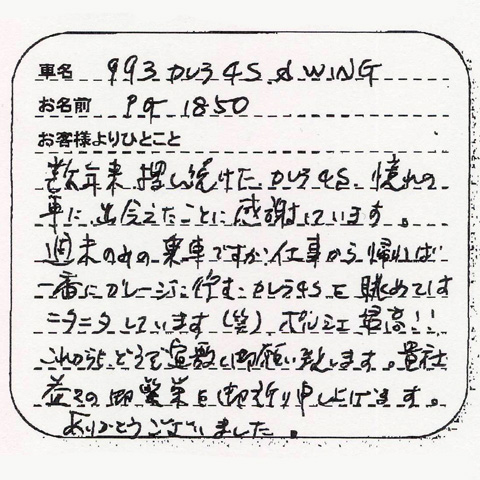 車名 993 カレラ4S & WING
お名前 P.G 1850
お客様よりひとこと
数年来捜し続けたカレラ4S、憧れの
車に出会えたことに感謝しています。
週末のみの乗車ですが仕事から帰れば
一番にガレージに佇むカレラ4Sを眺めては
ニタニタしています(笑)ポルシェ最高!!
これからもどうぞ宜敷く御願い致します。貴社
益々の御繁栄を御祈り申し上げます。
ありがとうございました。